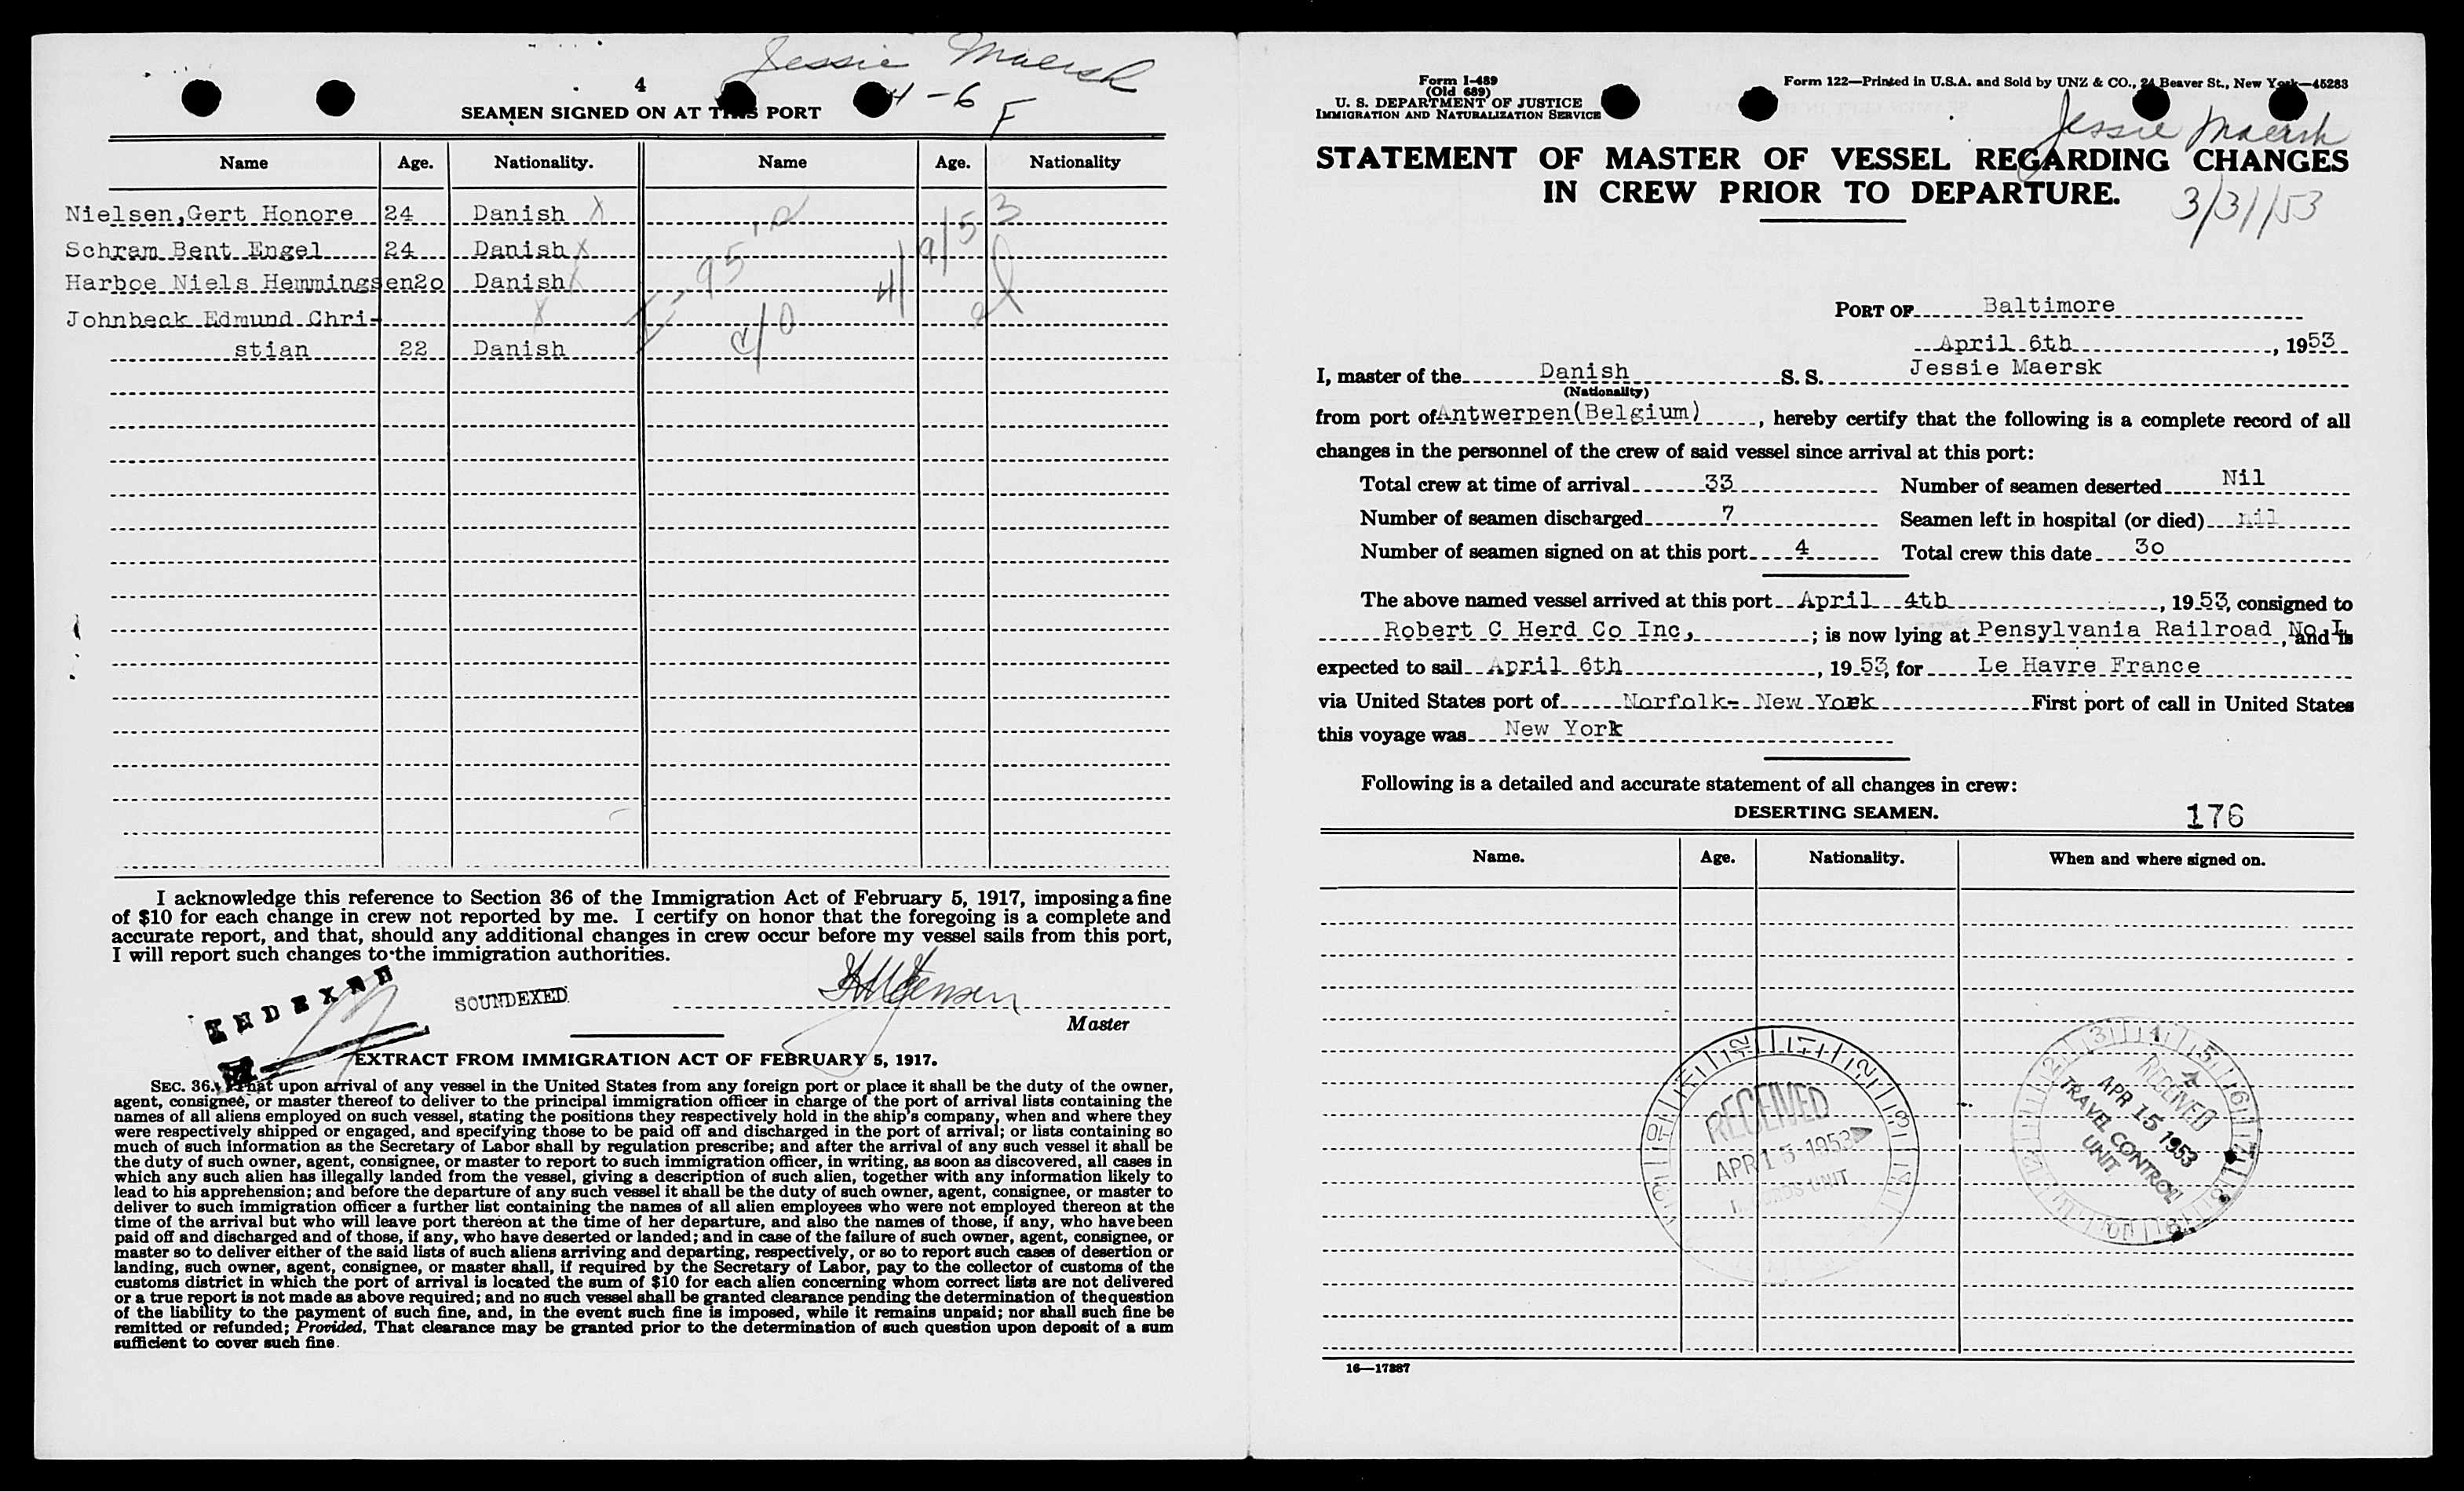 Jessie Maersk
4
4-6
F
SEAMEN SIGNED ON AT THIS PORT
Name Age. Nationality. Name Age. Nationality
Nielsen,Gert Honore 24 Danish X
Schram Bent Engel 24 Danish X
Harboe Niels Hemmingsen2o Danish X
Johnbeck Edmund Chri- X
stian 22 Danish
4/9/53
I acknowledge this reference to Section 36 of the Immigration Act of February 5, 1917, imposing a fine
of $10 for each change in crew not reported by me. I certify on honor that the foregoing is a complete and
accurate report, and that, should any additional changes in crew occur before my vessel sails from this port,
I will report such changes to the immigration authorities.
INDEXED
SOUNDEXED
Master
EXTRACT FROM IMMIGRATION ACT OF FEBRUARY 5, 1917.
SEC. 36. That upon arrival of any vessel in the United States from any foreign port or place it shall be the duty of the owner,
agent, consignee, or master thereof to deliver to the principal immigration officer in charge of the port of arrival lists containing the
names of all aliens employed on such vessel, stating the positions they respectively hold in the ship's company, when and where they
were respectively shipped or engaged, and specifying those to be paid off and discharged in the port of arrival; or lists containing so
much of such information as the Secretary of Labor shall by regulation prescribe; and after the arrival of any such vessel it shall be
the duty of such owner, agent, consignee, or master to report to such immigration officer, in writing, as soon as discovered, all cases in
which any such alien has illegally landed from the vessel, giving a description of such alien, together with any information likely to
lead to his apprehension; and before the departure of any such vessel it shall be the duty of such owner, agent, consignee, or master to
deliver to such immigration officer a further list containing the names of all alien employees who were not employed thereon at the
time of the arrival but who will leave port thereon at the time of her departure, and also the names of those, if any, who have been
paid off and discharged and of those, if any, who have deserted or landed; and in case of the failure of such owner, agent, consignee, or
master so to deliver either of the said lists of such aliens arriving and departing, respectively, or so to report such cases of desertion or
landing, such owner, agent, consignee, or master shall, if required by the Secretary of Labor, pay to the collector of customs of the
customs district in which the port of arrival is located the sum of $10 for each alien concerning whom correct lists are not delivered
or a true report is not made as above required; and no such vessel shall be granted clearance pending the determination of the question
of the liability to the payment of such fine, and, in the event such fine is imposed, while it remains unpaid; nor shall such fine be
remitted or refunded; Provided, That clearance may be granted prior to the determination of such question upon deposit of a sum
sufficient to cover such fine.
Form I-489
(Old 689)
U. S. DEPARTMENT OF JUSTICE
IMMIGRATION AND NATURALIZATION SERVICE
Form 122—Printed in U.S.A. and Sold by UNZ & CO., 24 Beaver St., New York—45283
Jessie Maersk
STATEMENT OF MASTER OF VESSEL REGARDING CHANGES
IN CREW PRIOR TO DEPARTURE.
3/31/53
PORT OF Baltimore
April 6th, 1953
I, master of the Danish S. S. Jessie Maersk
(Nationality)
from port of Antwerpen(Belgium), hereby certify that the following is a complete record of all
changes in the personnel of the crew of said vessel since arrival at this port:
Total crew at time of arrival 33 Number of seamen deserted Nil
Number of seamen discharged 7 Seamen left in hospital (or died) nil
Number of seamen signed on at this port 4 Total crew this date 3o
The above named vessel arrived at this port April 4th, 1953, consigned to
Robert C Herd Co Inc,; is now lying at Pensylvania Railroad No I, and is
expected to sail April 6th, 1953, for Le Havre France
via United States port of Norfolk- New York First port of call in United States
this voyage was New York
Following is a detailed and accurate statement of all changes in crew:
DESERTING SEAMEN.
176
Name. Age. Nationality. When and where signed on.
RECEIVED
APR 15 1953
UNIT
RECEIVED
APR 15 1953
TRAVEL CONTROL
UNIT
16—17887